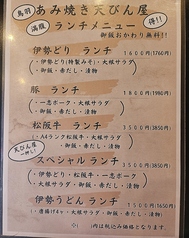 鳥羽 あみ焼き天びん屋 得!!
満腹 ランチメニュー
御飯おかわり無料!!
伊勢どり ランチ 1600円(1760円)
・伊勢どり(特製みそ)・大根サラダ
・御飯・赤だし・漬物
豚 ランチ 1800円(1980円)
・一志ポーク・大根サラダ
・御飯・赤だし・漬物
松阪牛 ランチ 3500円(3850円)
・A4ランク松阪牛・大根サラダ
・御飯・赤だし・漬物
天びん屋
スペシャルランチ 3500円(3850円)
・伊勢どり・松阪牛・一志ポーク
・大根サラダ・御飯・赤だし・漬物
伊勢うどんランチ 1500円(1650円)
・御飯・赤だし・漬物
※( )内は税込み価格となります。